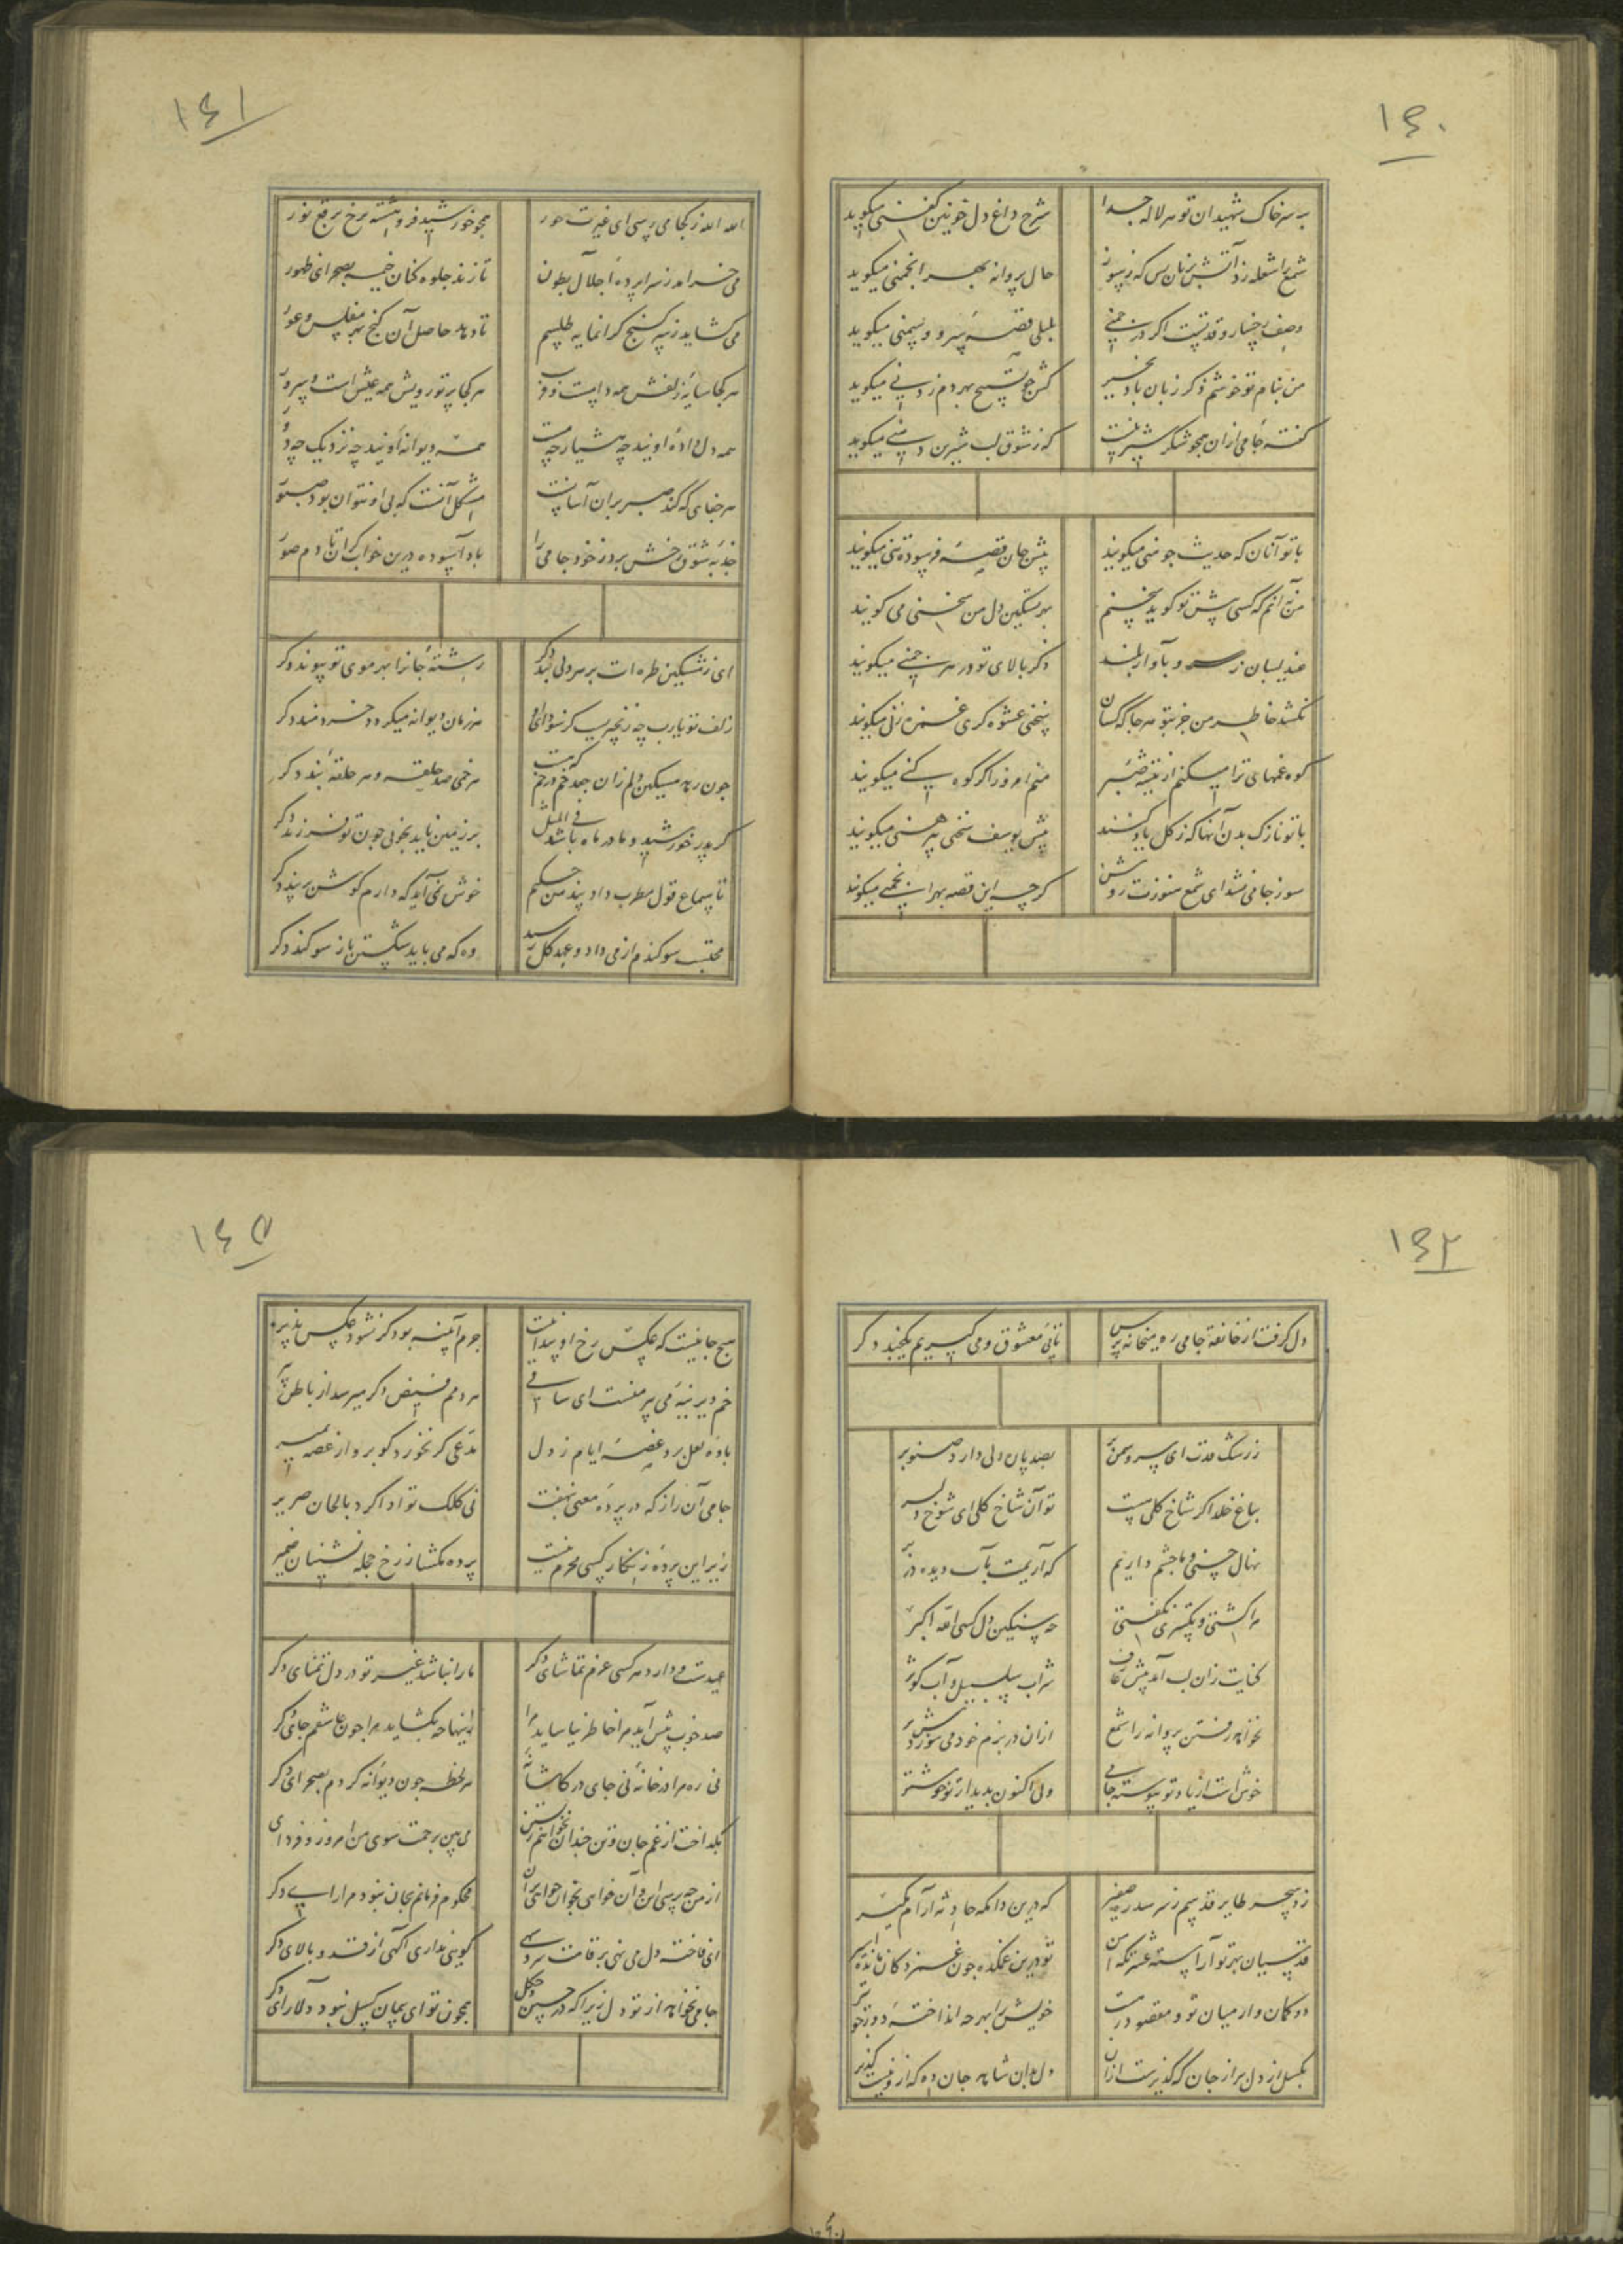 ١٤٠
بر سر خاک شهیدان تو هر لاله جدا
شرح داغ دل خونین کفنی میکوید
شمع را شعله زد آتش بزبان بس که ز سوز
حال پروانه بهر انجمنی میکوید
وصف رخسار و قدتست اکر در چمنی
بلبلی قصهٔ سرو و سمنی میکوید
من بنام تو خوشم ذکر زبان باد بخیر
کش چو تسبیح بهر دم زدنی میکوید
کفتهٔ جامی ازان همچو شکر شیرینست
که ز شوق لب شیرین دهنی میکوید
با تو آنان که حدیث چو منی میکویند
پیش جان قصهٔ فرسوده تنی میکویند
من نه آنم که کسی پیش تو کوید سخنم
بهر تسکین دل من سخنی می کویند
عندلیبان ز سر سرو بآواز بلند
ذکر بالای تو در هر چمنی میکویند
نکشد خاطر من جز بتو هر جا که کسان
سخنی عشوه کری غمزه زنی میکویند
کوه غمهای ترا میکنم از تیشهٔ صبر
منم امروز اکر کوه کنی میکویند
با تو نازک بدن آنها که ز کل یاد کنند
پیش یوسف سخن پیرهنی میکویند
سوز جامی نشد ای شمع هنوزت روشن
کرچه این قصه بهر انجمنی میکویند
١٤١
الله الله ز کجا می رسی ای غیرت حور
همچو خورشید فرو هشته برخ برقع نور
می خرامد ز سراپردهٔ اجلال بطون
تا زند جلوه کنان خیمه بصحرای ظهور
می کشاید ز سر کنج کرانمایه طلسم
تا دهد حاصل آن کنج بهر مفلس و عور
هر کجا سایهٔ زلفش همه دامست و فریب
هر کجا پرتو رویش همه عیش است و سرور
همه دل دادهٔ اویند چه هشیار چه مست
همه دیوانهٔ اویند چه نزدیک چه دور
هر جفای که کند صبر بران آسانست
مشکل آنست که بی او نتوان بود صبور
جذبهٔ شوق رخش برد ز خود جامی را
باد آسوده درین خواب کران تا دم صور
ای ز مشکین طره ات بر هر دلی بند دکر
رشتهٔ جانرا بهر موی تو پیوند دکر
زلف تو یارب چه زنجیریست کز سودای او
هر زمان دیوانه میکردد خردمند دکر
چون رهد مسکین دلم زان جعد خم در خم که هست
هر خمی صد حلقه و هر حلقهٔ بند دکر
کر پدر خورشید و مادر ماه باشد فی المثل
بر زمین ناید بخوبی چون تو فرزند دکر
تا سماع قول مطرب داد پند من حکیم
خوش نمی آید که دارم کوش بر پند دکر
محتسب سوکندم از می داد و عهد کل رسید
وه که می باید شکستن باز سوکند دکر
١٤٢
دل کرفت از خانقه جامی ره میخانه پرس
تا پی معشوق و می کیریم یکچند دکر
ز رشک قدت ای سرو سمن بر
بصد پاره دلی دارد صنوبر
بباغ خلد اکر شاخ کلی هست
تو آن شاخ کلی ای شوخ دلبر
نهال حسنی و ما چشم داریم
که آریمت بآب دیده در بر
مرا کشتی و تکبیری نکفتی
چه سنکین دل کسی الله اکبر
کنایت زان لب آمد پیش عارف
شراب سلسبیل و آب کوثر
نخواهد رفتن پروانه را شمع
ازان در بزم خود می سوزدش پر
خوش است از یاد تو پیوسته جامی
ولی اکنون بدیدار تو خوشتر
زد سحر طایر قدسم ز سر سدره صفیر
که درین دامکه حادثه آرام مکیر
قدسیان بهر تو آراسته عشرتکه انس
تو درین غمکده چون غمزدکان مانده اسیر
دو کمان وار میان تو و مقصود رهست
خویش را بهر چه انداختهٔ دور چو تیر
بکسل از دل ببر از جان که کزیرست ازان
دل بدان شاهد جان ده که ازو نیست کزیر
١٤٥
هیچ جا نیست که عکس رخ او پیدا نیست
جرم آیینه بود کر نشود عکس پذیر
خم دیرینهٔ می پیر منست ای ساقی
هر دمم فیض دکر میرسد از باطن پیر
بادهٔ لعل برد غصهٔ ایام ز دل
مدعی کر نخورد کو برو از غصه بمیر
جامی آن راز که در پردهٔ معنی بنهفت
نی کلک تو ادا کرد بالحان صریر
زیر این پردهٔ زنکار کسی محرم نیست
پرده مکشا ز رخ حجله نشینان ضمیر
عیدست و دارد هر کسی عزم تماشای دکر
ما را نباشد غیر تو در دل تمنای دکر
صد خوب پیش آید مرا خاطر نیاساید مرا
زینها چه بکشاید مرا چون عاشقم جای دکر
نی ره مرا در خانهٔ نی جای در کاشانهٔ
هر لحظه چون دیوانه کردم بصحرای دکر
بکداخت از غم جان و تن چندان نخواهم زیستن
می بین برحمت سوی من امروز و فردای دکر
از من چه پرسی این و آن خواهی بخوان خواهی بران
محکوم فرمانم بجان نبود مرا رایی دکر
ای فاخته دل می نهی بر قامت سرو سهی
کویی نداری آکهی از قد و بالای دکر
جامی نخواهد از تو دل زیرا که در چین و چکل
همچون تو ای پیمان کسل نبود دلارای دکر